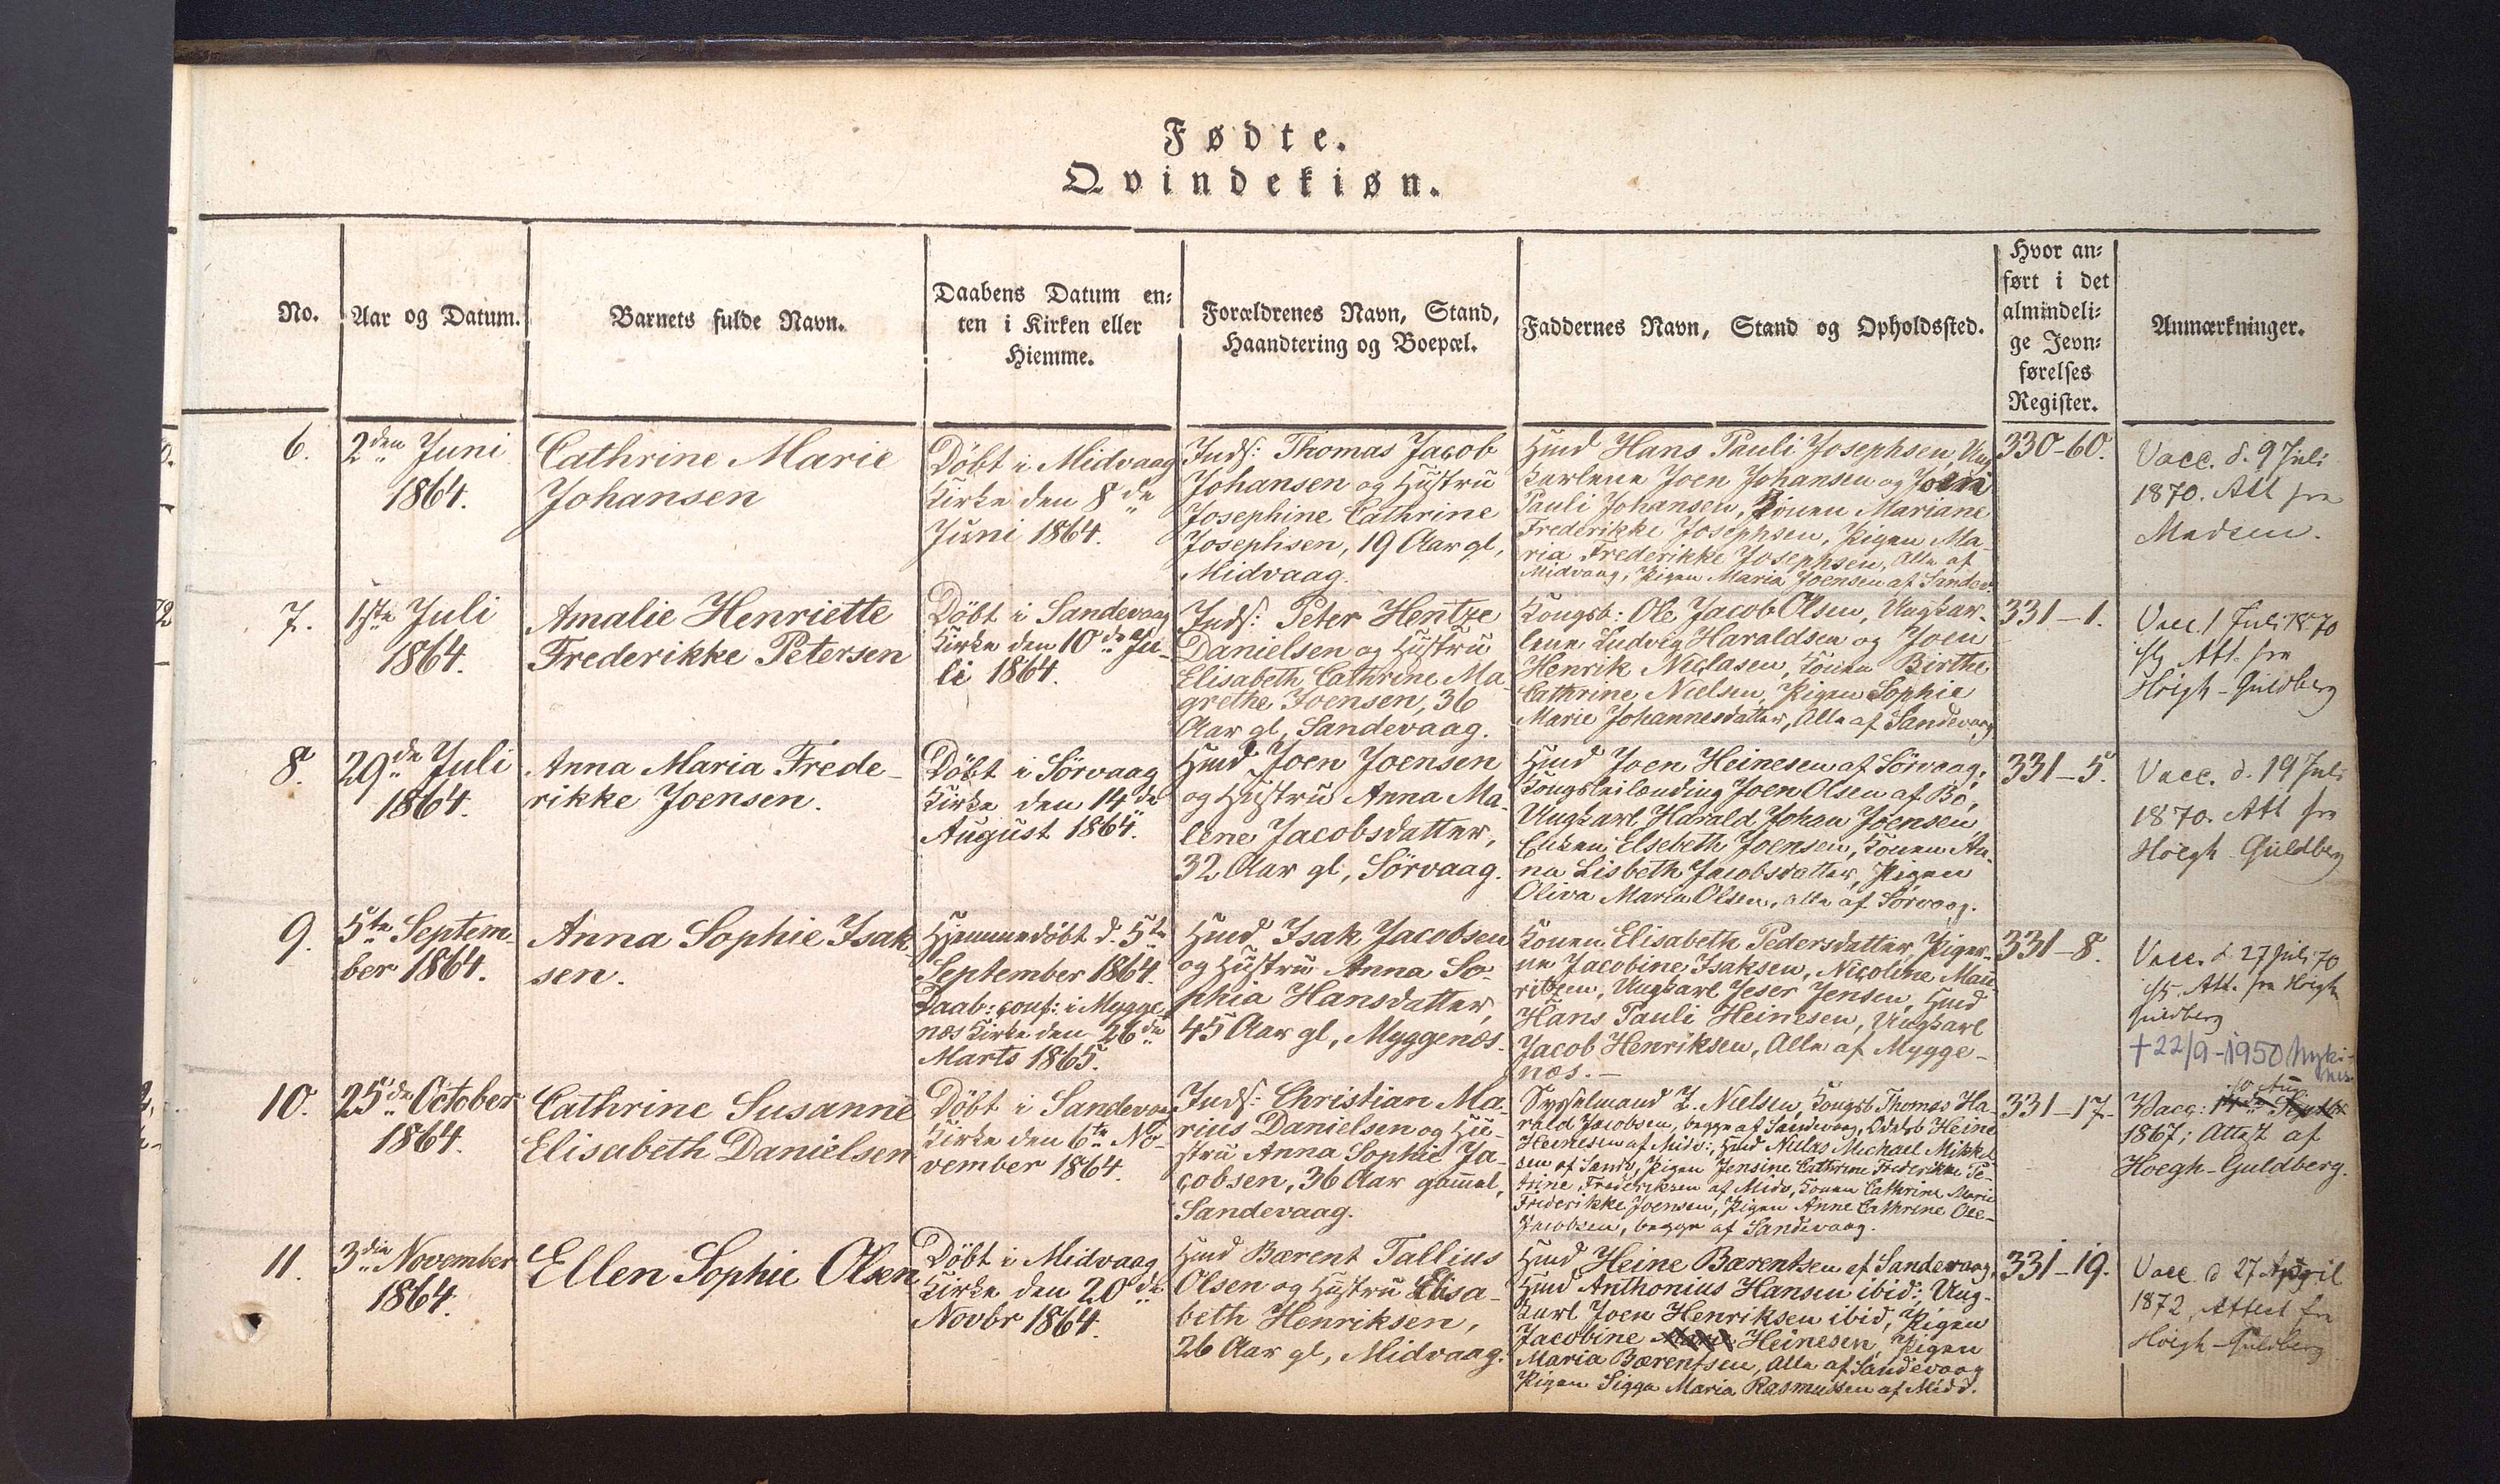 Fødte.
Qvindekiøn.
No.
Aar og Datum.
Barnets fulde Navn.
Daabens Datum en-
ten i Kirken eller
Hiemme.
Forældrenes Navn, Stand,
Haandtering og Boepæl.
Faddernes Navn, Stand og Opholdssted.
Hvor an-
ført i det
almindeli-
ge Jevn-
førelses
Register.
Anmærkninger.
6.
2den Juni
1864.
Cathrine Marie
Johansen
Döbt i Midvaag
Kirke den 8de
Juni 1864.
Inds: Thomas Jacob
Johansen og Hustru
Josephine Cathrine
Josephsen, 19 Aar gl,
Midvaag.
Hmd Hans Pauli Josephsen, Ung
karlene Joen Johansen og Joen
Pauli Johansen, Konen Mariane
Frederikke Josephsen, Pigen Ma-
ria Frederikke Josephsen, Alle af
Midvaag, Pigen Maria Joensen af Sandev.
330-60.
Vacc. d. 9 Juli
1870. Att fra
Madsen.
7.
1ste Juli
1864.
Amalie Henriette
Frederikke Petersen
Döbt i Sandevaag
Kirke den 10de Ju-
li 1864.
Inds: Peter Hentze
Danielsen og Hustru
Elisabeth Cathrine Ma-
grethe Joensen, 36
Aar gl, Sandevaag.
Kongsb: Ole Jacob Olsen, Ungkar-
lene Ludvig Haraldsen og Joen
Henrik Niclasen, Konen Birthe
Cathrine Nielsen, Pigen Sophie
Marie Johannesdatter, Alle af Sandevaag
331-1.
Vacc. 1 Juli 1870
Att. fra
Höigh-Guldberg
8.
29de Juli
1864.
Anna Maria Frede-
rikke Joensen.
Döbt i Sörvaag
Kirke den 14de
August 1864.
Hmd Joen Joensen
og Hustru Anna Ma-
lene Jacobsdatter,
32 Aar gl, Sörvaag.
Hmd Joen Heinesen af Sörvaag,
Kongsleilænding Joen Olsen af Bö,
Ungkarl Harald Johan Joensen
Elsebeth Joensen, Konen An-
na Lisbeth Jacobsdatter, Pigen
Oliva Maria Olsen, alle af Sörvaag.
331-5.
Vacc. d. 19 Juli
1870. Att fra
Höegh Guldberg
9.
5te Septem-
ber 1864.
Anna Sophie Isak-
sen.
Hjemmedöbt d. 5te
September 1864.
Daab: conf: i Mygge
næs Kirke den 26de
Marts 1865.
Hmd Isak Jacobsen
og Hustru Anna So-
phia Hansdatter,
45 Aar gl, Myggenæs.
Konen Elisabeth Pedersdatter, Piger-
ne Jacobine Isaksen, Nicoline Mau-
ritzen, Ungkarl Jeser Jensen, Hmd
Hans Pauli Heinesen, Ungkarl
Jacob Henriksen, Alle af Mygge-
næs.-
331-8.
Vacc. d 27 Juli 70
Att. fra Höigh
Guldberg
+ 22/9-1950
10.
25de October
1864.
Cathrine Susanne
Elisabeth Danielsen
Döbt i Sandevaag
Kirke den 6te No-
vember 1864.
Inds: Christian Ma-
rius Danielsen og Hu-
stru Anna Sophie Ja-
cobsen, 36 Aar gammel,
Sandevaag.
Sysselmand Z. Nielsen, Kongsb Thomas Ha-
rald Jacobsen, begge af Sandevaag, Odelsb Heine
Heinesen af Midv:, Hmd Niclas Michael Mikkel-
sen af Sandv, Pigen Jensine Cathrine Frederikke Pe-
trine Frederiksen af Midv, Konen Cathrine Marie
Friederikke Joensen, Pigen Anne Cathrine Ole-
Jacobsen, begge af Sandevaag.
331-17.
10 Aug
Vacc: 1867; Attest af
Hoegh-Guldberg.
11.
3die November
1864.
Ellen Sophie Olsen
Döbt i Midvaag
Kirke den 20de
Novbr 1864.
Hmd Bærent Tallius
Olsen og Hustru Elisa-
beth Henriksen,
26 Aar gl, Midvaag.
Hmd Heine Bærentsen af Sandevaag,
Hmd Anthonius Hansen ibid: Ung-
karl Joen Henriksen ibid, Pigen
Jacobine Heinesen, Pigen
Maria Bærentsen, Alle af Sandevaag
Pigen Sigga Maria Rasmussen af Midv.
331-19.
Vacc d 27 April
1872, Attest fra
Höigh-Guldberg